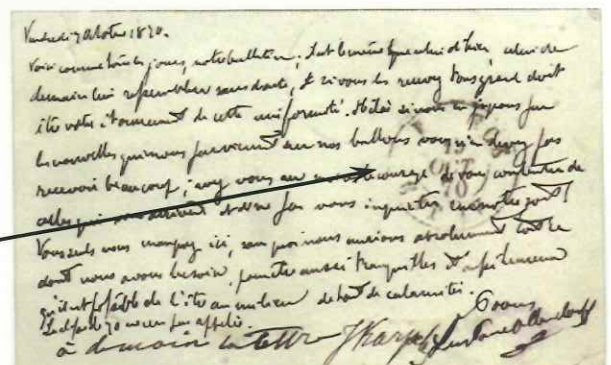 Vendredi 7 Octobre 1870.
Voici comme tous les jours, notre bulletin; tout le même que celui d'hier celui de
demain lui ressemblera sans doute, et si vous les recevez tous grand doit
être votre étonnement de cette uniformité. Hélas si nous en jugeons par
les nouvelles qui nous parviennent sur nos ballons vous n'en devez pas
recevoir beaucoup; ayez vous au courage de vous contenter de
celles qui vous arrivent et de ne pas vous inquiéter en notre
Vous seuls vous manquez ici, sans quoi nous aurions absolument tout ce
dont nous avons besoin, pour être aussi tranquilles et aussi heureux
qu'il est possible de l'être au milieu de tant de calamités.
Le départ 70 encore pas appelés.
à demain la lettre